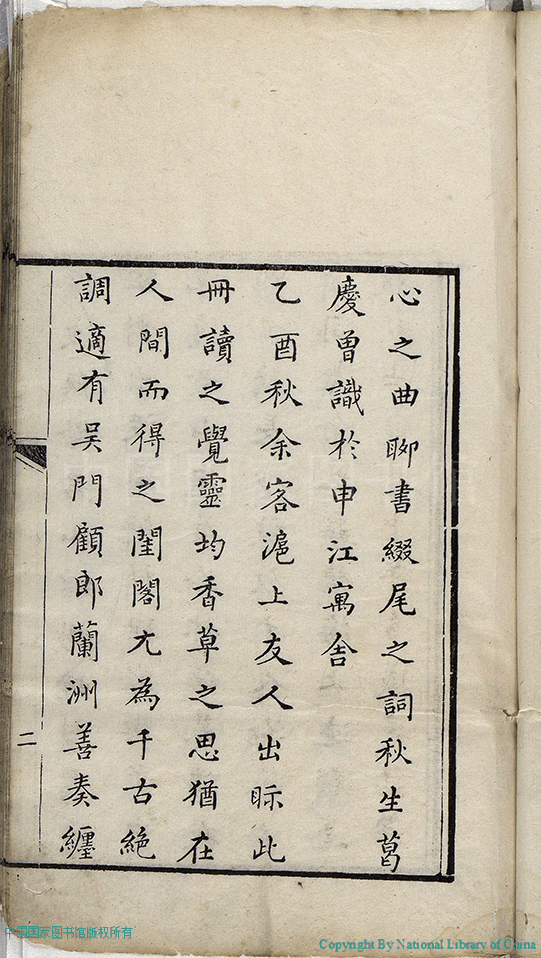 心之曲聊書綴尾之詞秋生葛
慶曾識於申江寓舍
乙酉秋余客滬上友人出眎此
冊讀之覺靈均香草之思猶在
人間而得之閨閣尤為千古絕
調適有吳門顧郎蘭洲善奏纏
二
中国国家图书馆版权所有
Copyright By National Library of China